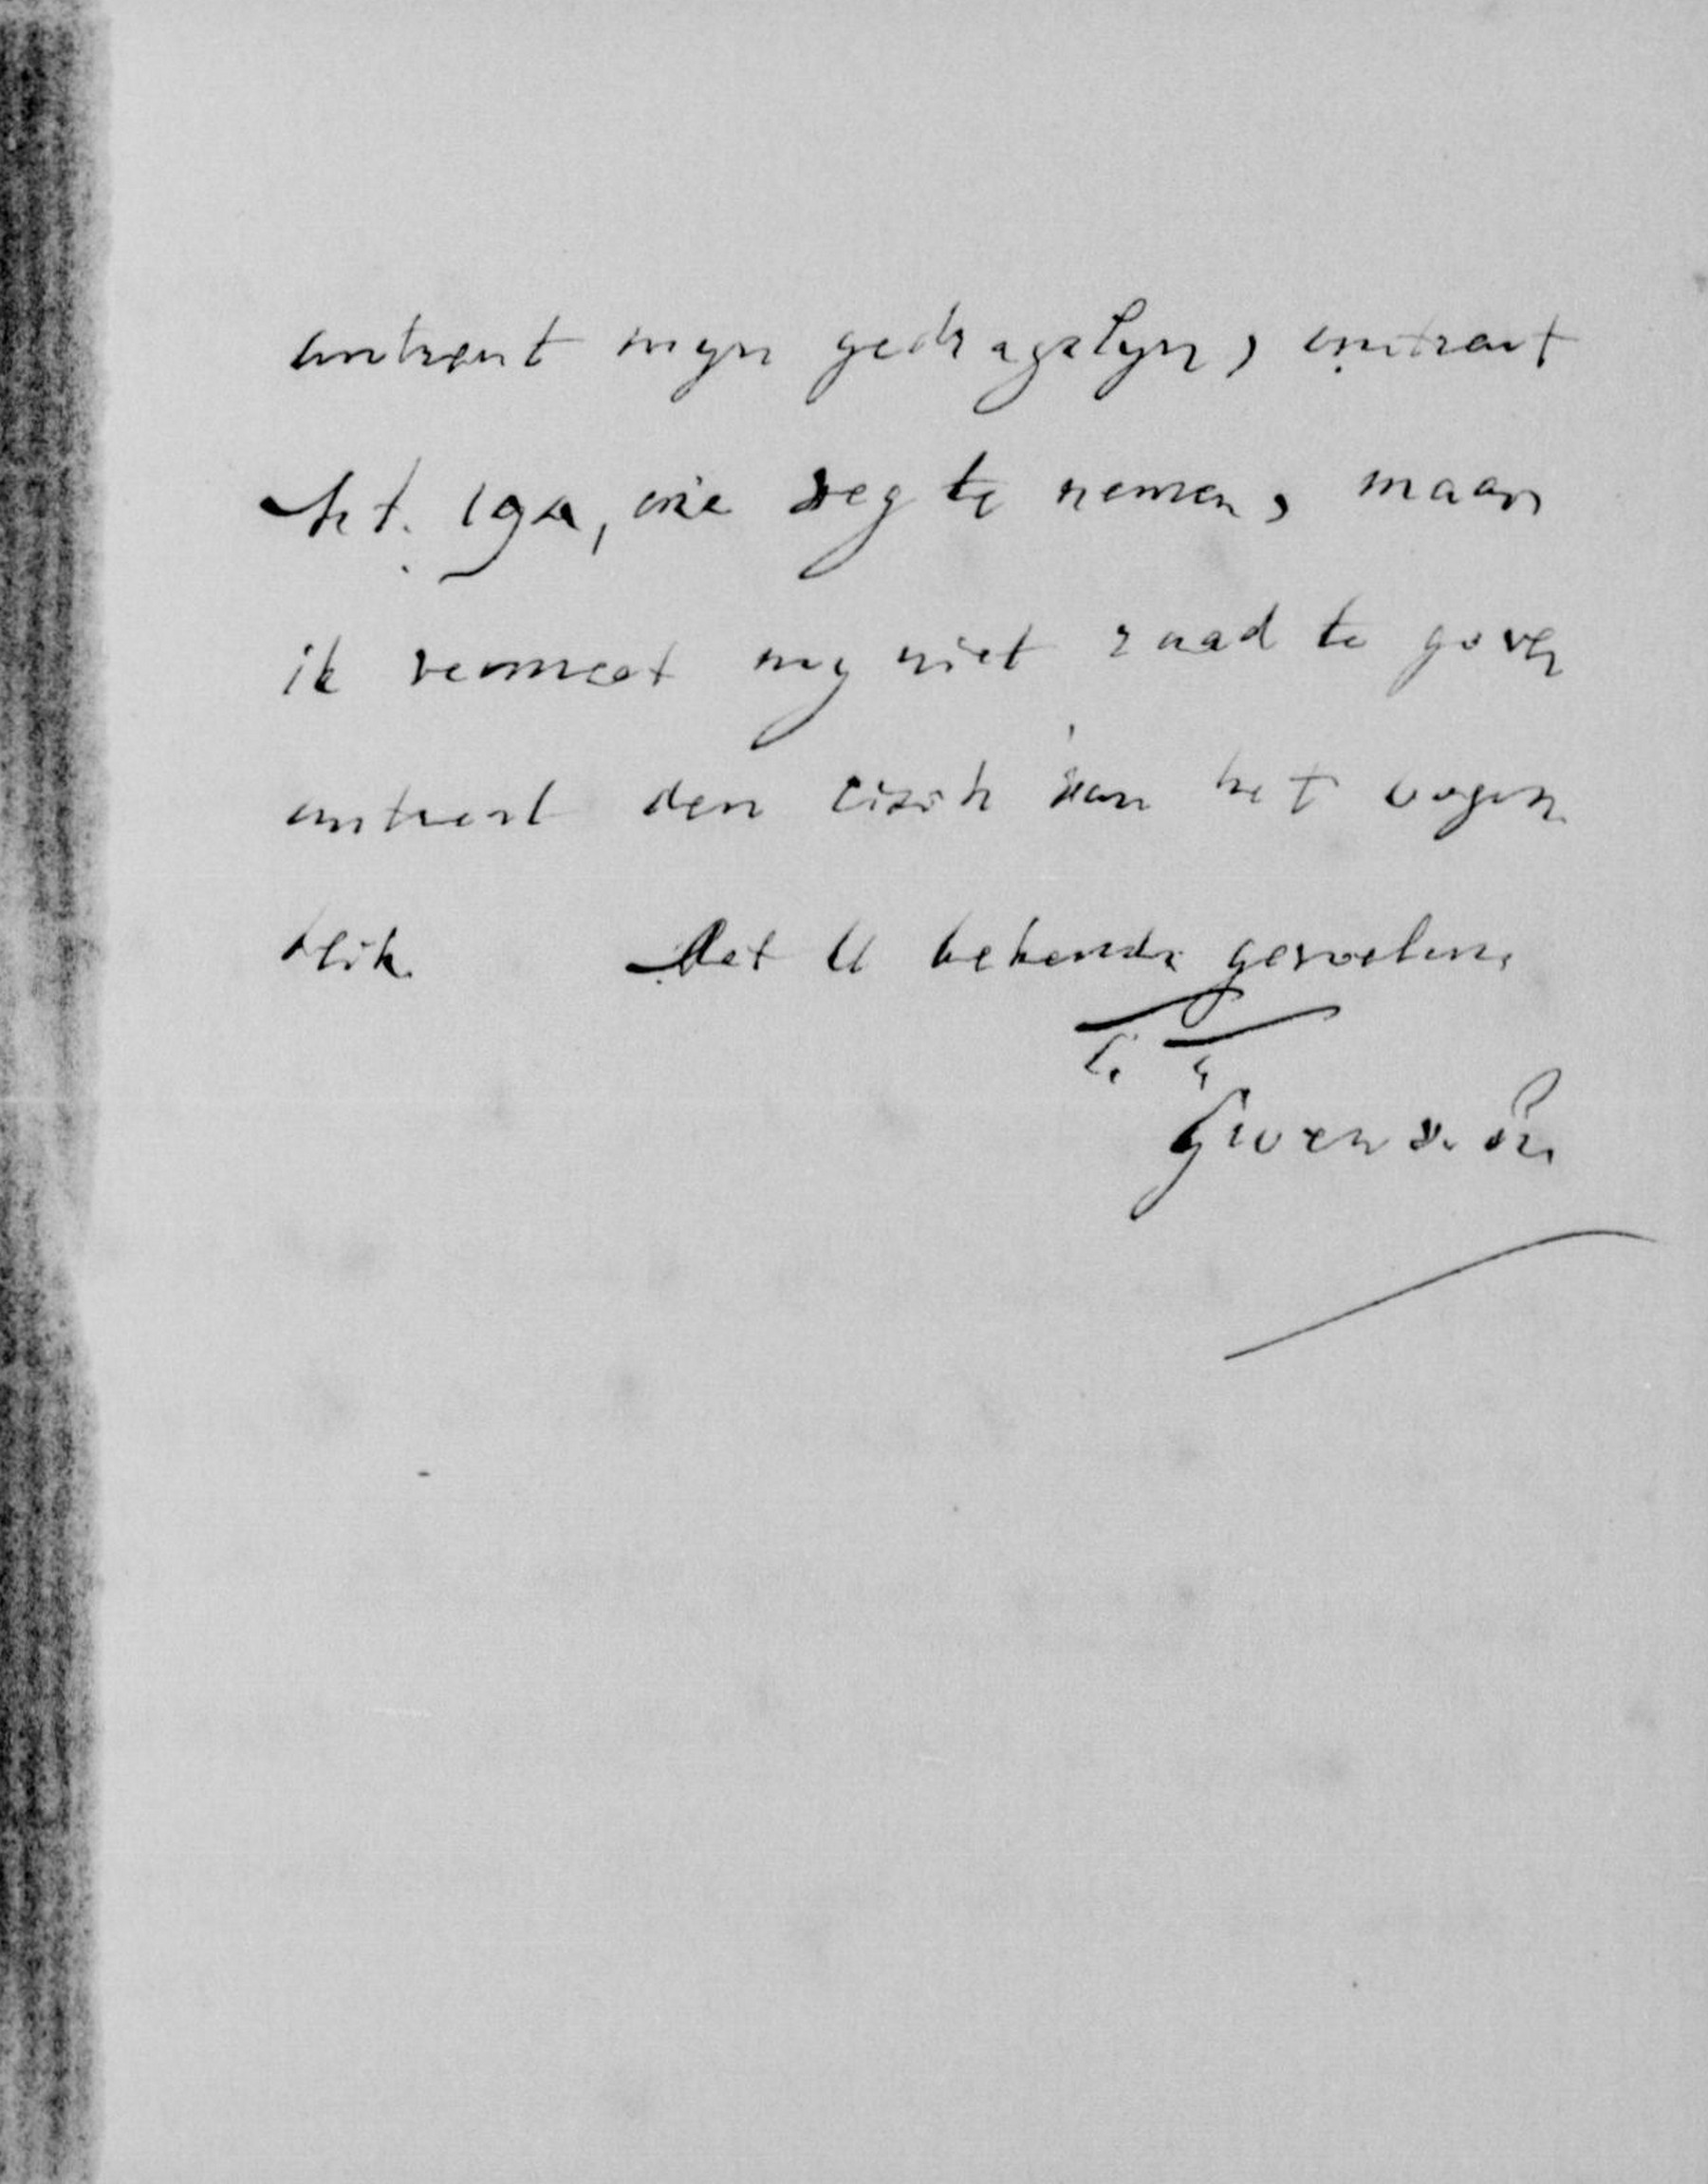 omtrent myn gedragslyn, omtrent
Art. 192, mie weg te nemen, maar
ik vermeet my niet raad te geven
omtrent den eisch van het oogen
blik. Met U bekende gevoelens
Groen v. Pr.